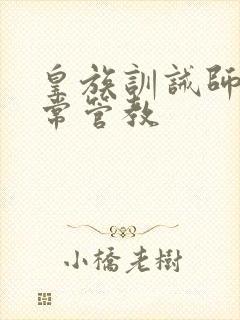 皇族訓誡師
常管教
小橋老樹